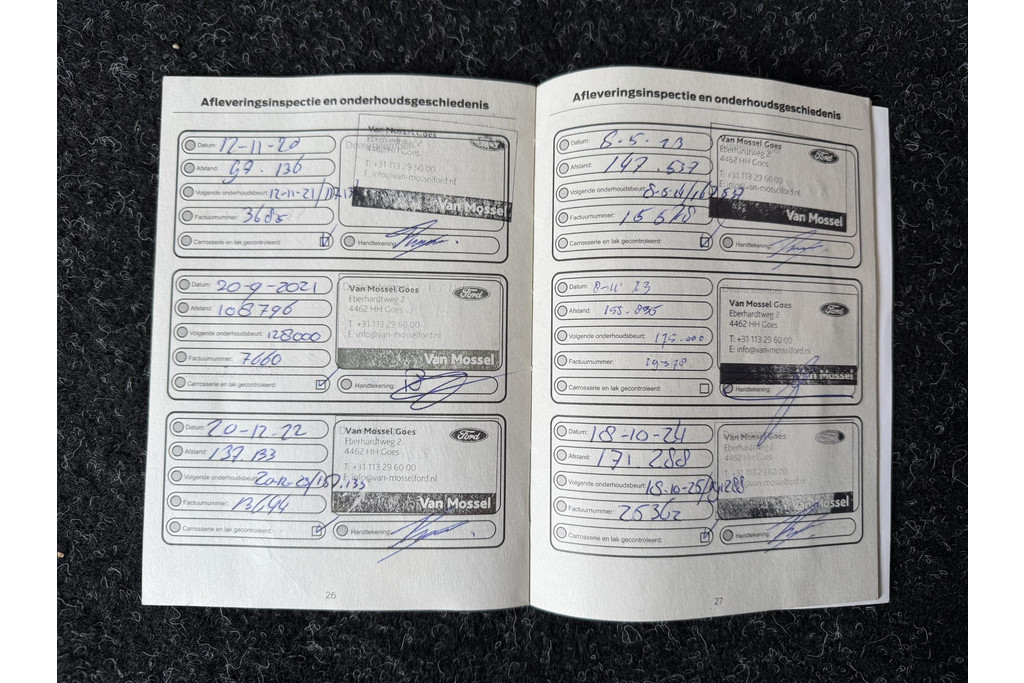 Afleveringsinspectie en onderhoudsgeschiedenis
Datum: 12-11-20
Afstand: 97.136
Volgende onderhoudsbeurt: 12-11-21/
Factuurnummer: 3685
Carrosserie en lak gecontroleerd:
Van Mossel Goes
Eberhardtweg 2
4462 HH Goes
T: +31 113 29 60 00
E: info@van-mosselford.nl
Van Mossel
Handtekening:
Datum: 20-9-2021
Afstand: 108796
Volgende onderhoudsbeurt: 128000
Factuurnummer: 7660
Carrosserie en lak gecontroleerd:
Van Mossel Goes
Eberhardtweg 2
4462 HH Goes
T: +31 113 29 60 00
E: info@van-mosselford.nl
Ford
Van Mossel
Handtekening:
Datum: 20-12-22
Afstand: 137.133
Volgende onderhoudsbeurt: 20-12-23/157.133
Factuurnummer: 13644
Carrosserie en lak gecontroleerd:
Van Mossel Goes
Eberhardtweg 2
4462 HH Goes
T: +31 113 29 60 00
E: info@van-mosselford.nl
Ford
Van Mossel
Handtekening:
26
Afleveringsinspectie en onderhoudsgeschiedenis
Datum: 8-5-23
Afstand: 147.537
Volgende onderhoudsbeurt: 8-5-24/167.537
Factuurnummer:
Carrosserie en lak gecontroleerd:
Van Mossel Goes
Eberhardtweg 2
4462 HH Goes
T: +31 113 29 60 00
E: info@van-mosselford.nl
Ford
Van Mossel
Handtekening:
Datum: 8-11 23
Afstand:
Volgende onderhoudsbeurt: 175.000
Factuurnummer: 19578
Carrosserie en lak gecontroleerd:
Van Mossel Goes
Eberhardtweg 2
4462 HH Goes
T: +31 113 29 60 00
E: info@van-mosselford.nl
Ford
Van Mossel
Handtekening:
Datum: 18-10-24
Afstand: 171.288
Volgende onderhoudsbeurt: 18-10-25/
Factuurnummer: 26362
Carrosserie en lak gecontroleerd:
Van Mossel Goes
Eberhardtweg 2
4462 HH Goes
T: +31 113 29 60 00
E: info@van-mosselford.nl
Mossel
Handtekening:
27